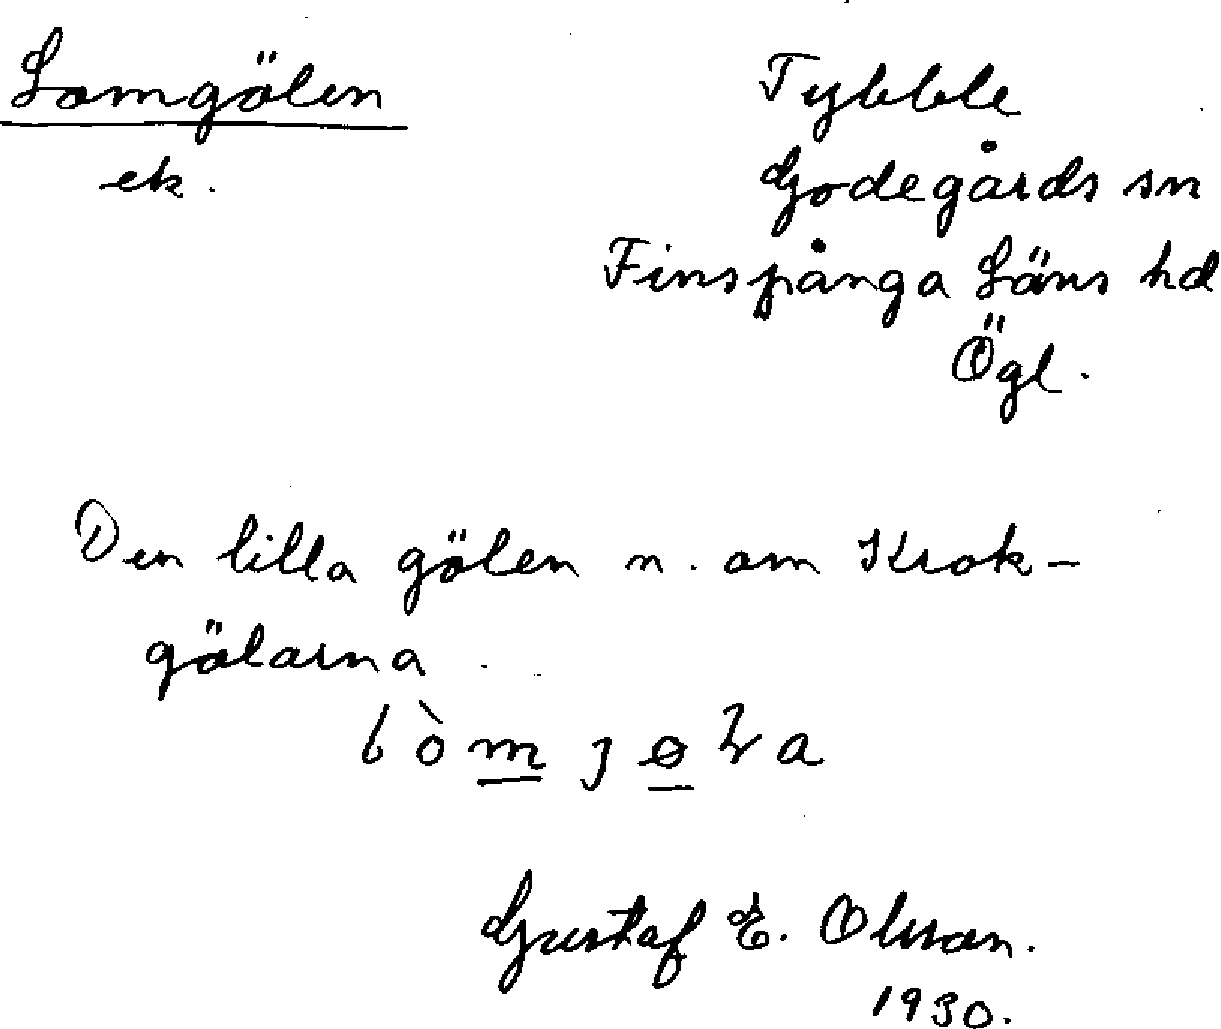 Lomgölen
ek.
Tybble
Godegårds sn
Finspånga Läns hd
Ögl.
Den lilla gölen n. om Krok-
gölarna
Gustaf E. Olsson.
1930.